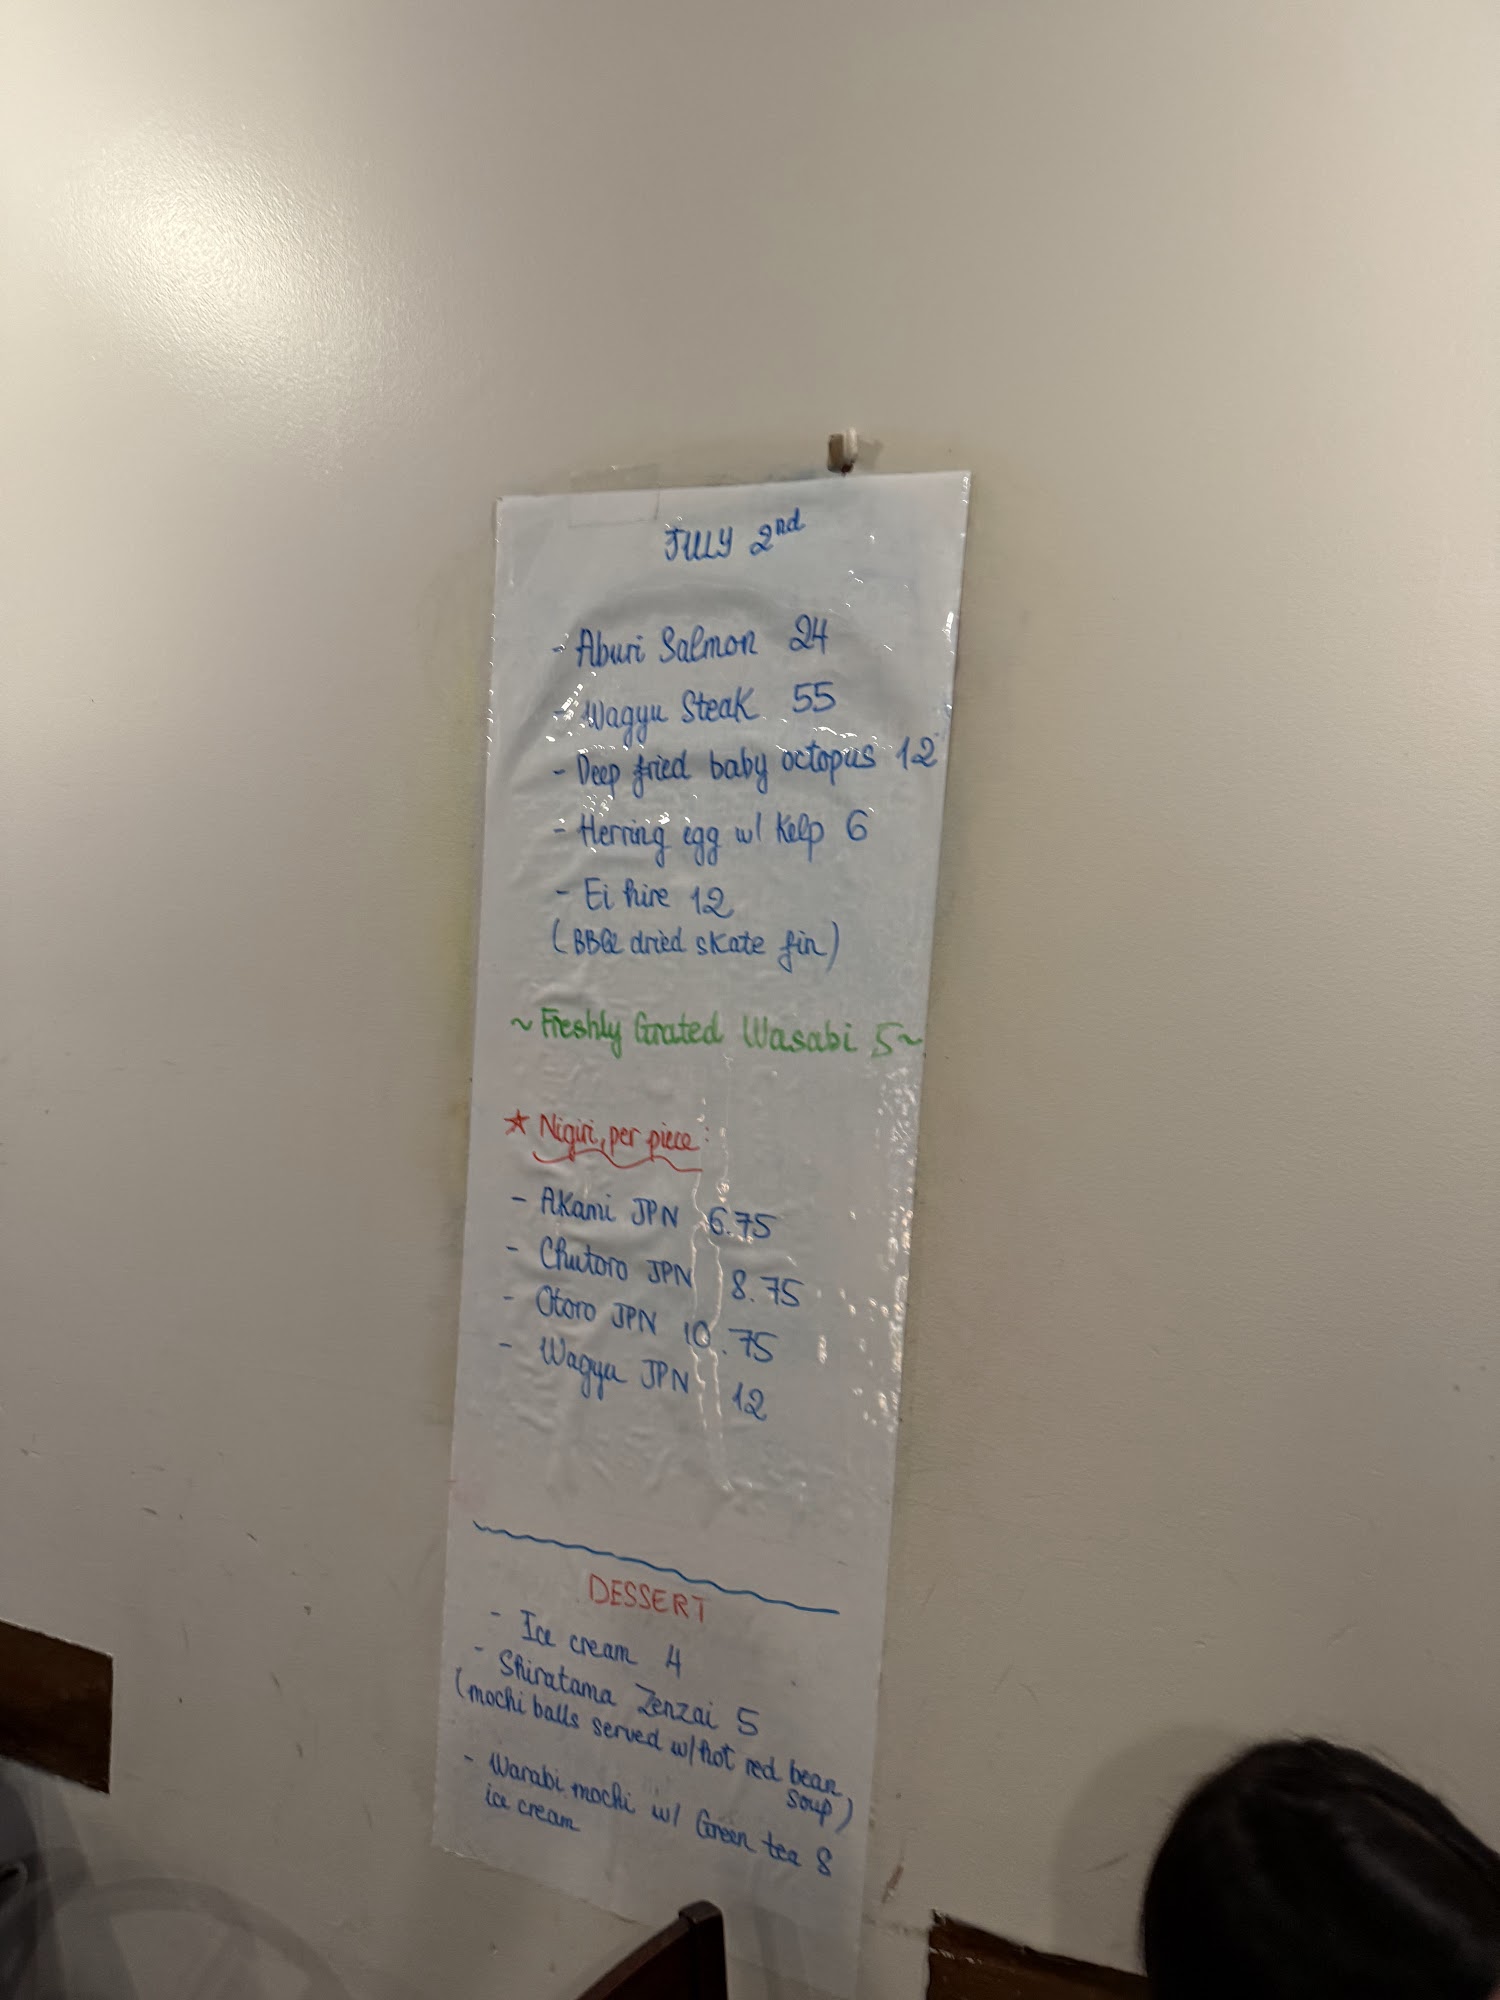 JULY 2nd
- Aburi Salmon 24
- Wagyu Steak 55
- Deep fried baby octopus 12
- Herring egg w/ Kelp 6
- Ei hire 12
(BBQ dried skate fin)
~ Freshly Grated Wasabi 5 ~
★ Nigiri, per piece:
- Akami JPN 6.75
- Chutoro JPN 8.75
- Otoro JPN 10.75
- Wagyu JPN 12
DESSERT
- Ice cream 4
- Shiratama Zenzai 5
(mochi balls served w/hot red bean
soup)
- Warabi mochi w/ Green tea 8
ice cream